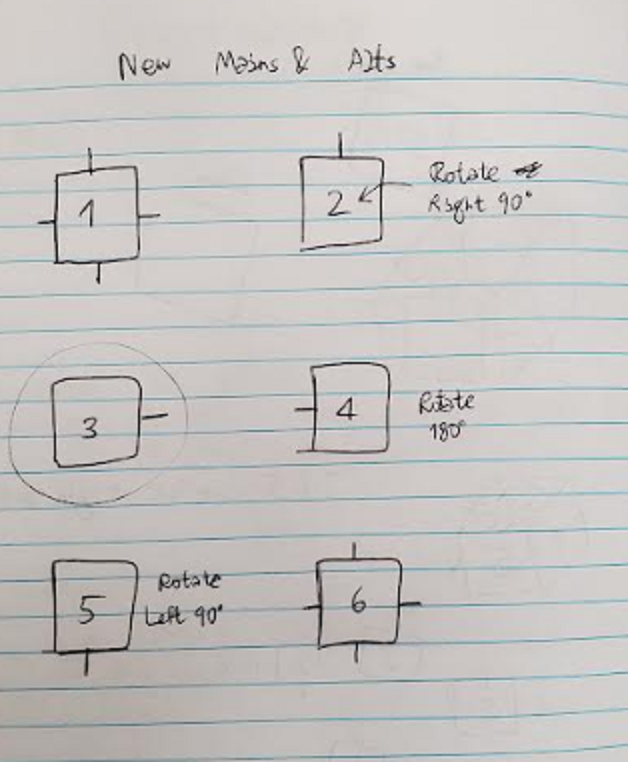 New Mains & Alts
1
2
Rotate
Right 90°
3
4
Rotate
180°
5
Rotate
Left 90°
6